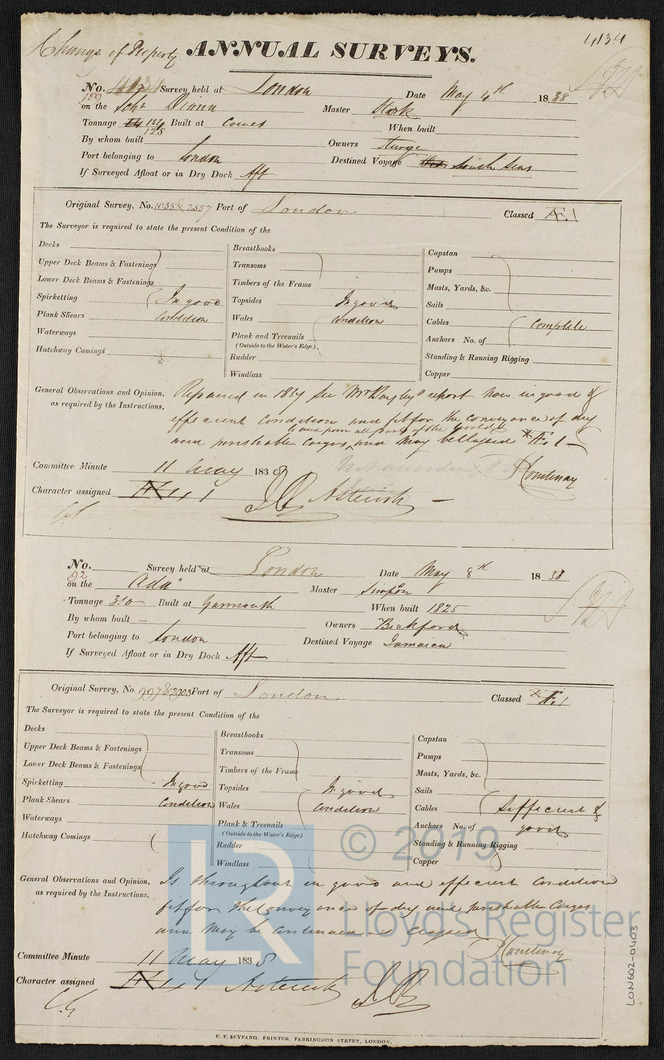 Change of Property
ANNUAL SURVEYS.
4134
No. Survey held at London Date May 4th 1838
on the Schr Diana Master Stark
Tonnage 124 Built at Cowes When built
125
By whom built Owners Sturge
Port belonging to London Destined Voyage South Seas
If Surveyed Afloat or in Dry Dock Aft
Original Survey, No. Port of London Classed Æ.1
The Surveyor is required to state the present Condition of the
Decks
Upper Deck Beams & Fastenings
Lower Deck Beams & Fastenings
Spirketting In good
Plank Shears Condition
Waterways
Hatchway Comings
Breasthooks
Transoms
Timbers of the Frame
Topsides In good
Wales Condition
Plank and Treenails
(Outside to the Water's Edge)
Rudder
Windlass
Capstan
Pumps
Masts, Yards, &c.
Sails
Cables Complete
Anchors No. of
Standing & Running Rigging
Copper
General Observations and Opinion, Repaired in 1834 See Mr Bayley's report Now in good &
as required by the Instructions.
efficient Condition and fit for the Conveyance of dry
to and from all parts of the World
and perishable Cargos, and may be classed * Æ 1
Committee Minute 11 May 1838 Courtenay
Character assigned Æ 1 Asterisk
No. Survey held at London Date May 8th 1838
on the "Ada" Master Simpson
Tonnage 310 Built at Yarmouth When built 1825
By whom built Owners Beckford
Port belonging to London Destined Voyage Jamaica
If Surveyed Afloat or in Dry Dock Aft
Original Survey, No Port of London Classed * Æ.1
The Surveyor is required to state the present Condition of the
Decks
Upper Deck Beams & Fastenings
Lower Deck Beams & Fastenings
Spirketting In good
Plank Shears Condition
Waterways
Hatchway Comings
Breasthooks
Transoms
Timbers of the Frame
Topsides In good
Wales Condition
Plank & Treenails
(Outside to the Water's Edge)
Rudder
Windlass
Capstan
Pumps
Masts, Yards, &c.
Sails
Cables Sufficient &
Anchors No. of good
Standing & Running Rigging
Copper
General Observations and Opinion, Is throughout in good and efficient Condition
as required by the Instructions.
fit for the Conveyance of dry and perishable Cargos
and May be Continued as Classed
Courtenay
Committee Minute 11 May 1838
Character assigned Æ 1 Asterisk
C. F. SEYFANG, PRINTER, FARRINGDON STREET, LONDON.
LR © 2019
Lloyd's Register
Foundation
LON602-0403